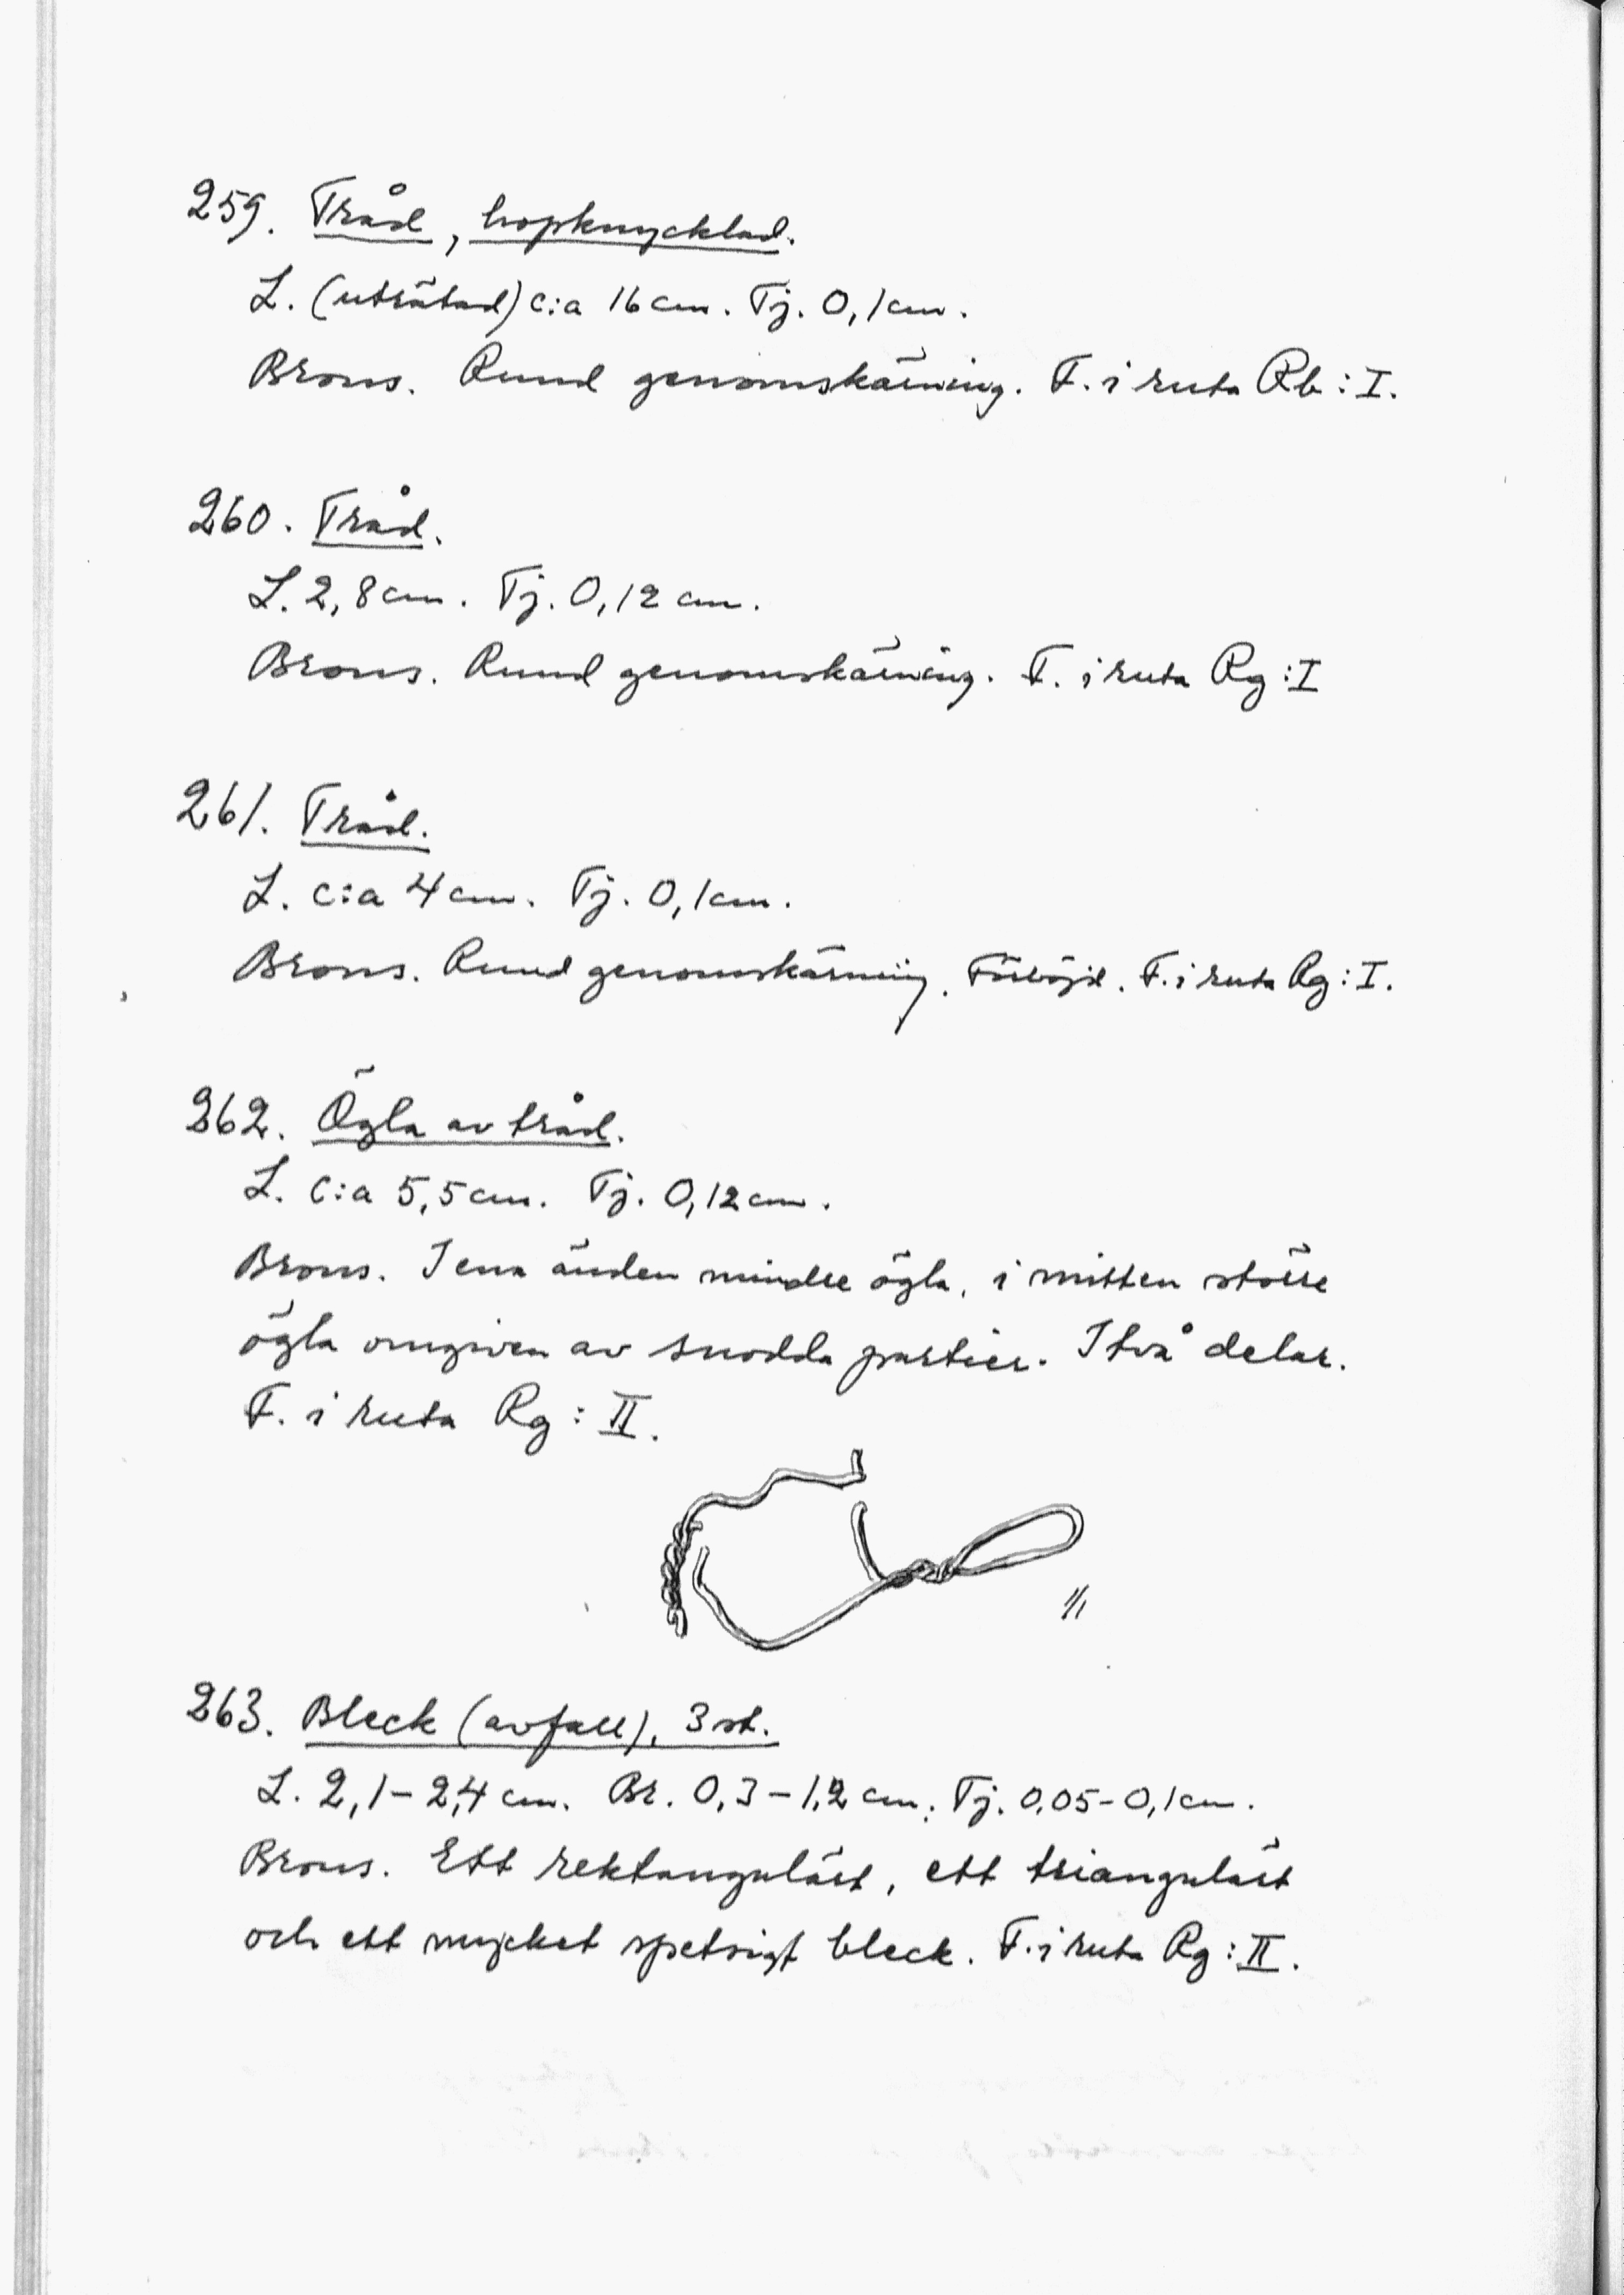 259. Tråd, hopknycklad.
L. (uträtad) c:a 16 cm. Tj. 0,1 cm.
Brons. Rund genomskärning. F. i ruta Rb:I.
260. Tråd.
L. 2,8 cm. Tj. 0,12 cm.
Brons. Rund genomskärning. F. i ruta Rg:I
261. Tråd.
L. c:a 4 cm. Tj. 0,1 cm.
Brons. Rund genomskärning. Förböjd. F. i ruta Rg:I.
262. Ögla av tråd.
L. c:a 5,5 cm. Tj. 0,12 cm.
Brons. I ena änden mindre ögla, i mitten större
ögla omgiven av snodda partier. I två delar.
F. i ruta Rg:II.
1/1
263. Bleck (avfall), 3 st.
L. 2,1-2,4 cm. Br. 0,3-1,2 cm. Tj. 0,05-0,1 cm.
Brons. Ett rektangulärt, ett triangulärt
och ett mycket spetsigt bleck. F. i ruta Rg:II.